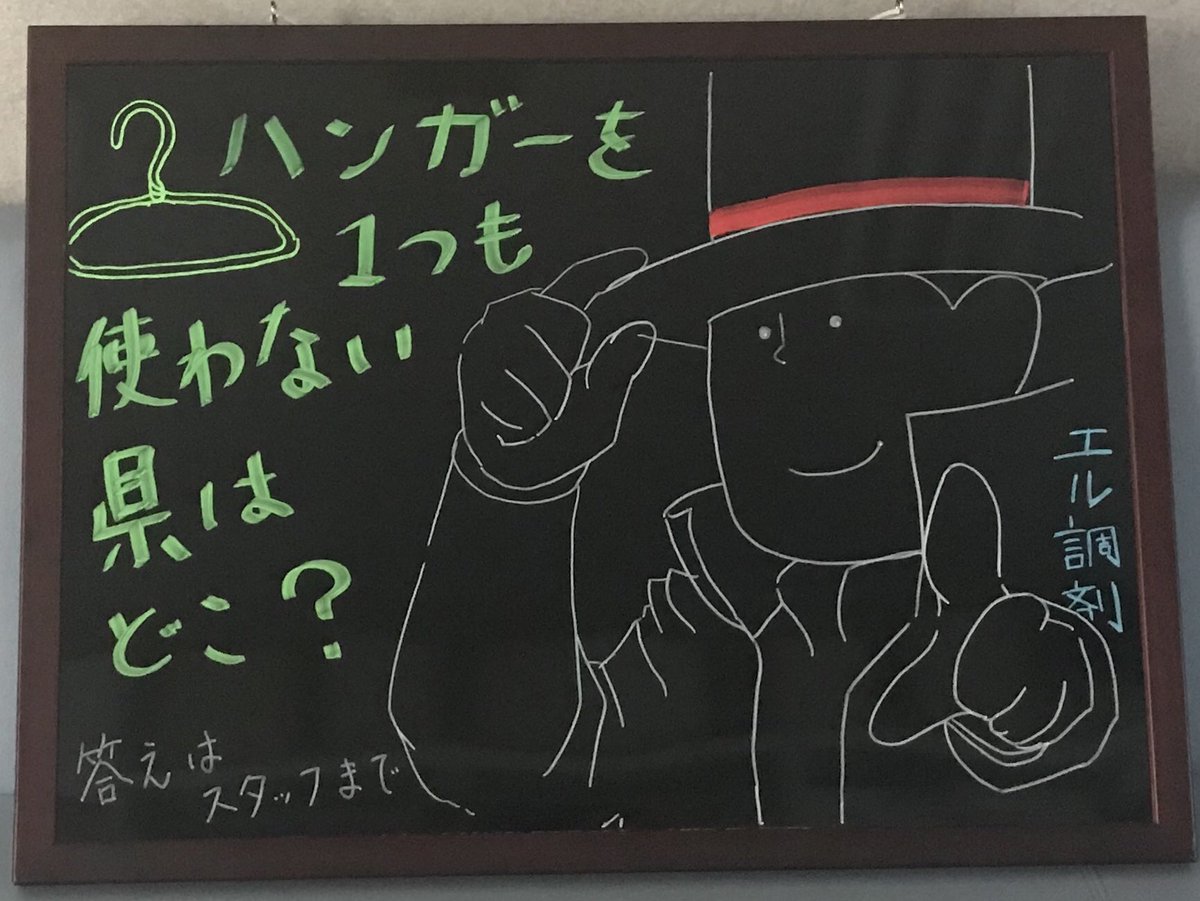 ハンガーを
1つも
使わない
県は
どこ?
答えは
スタッフまで
エル調剤